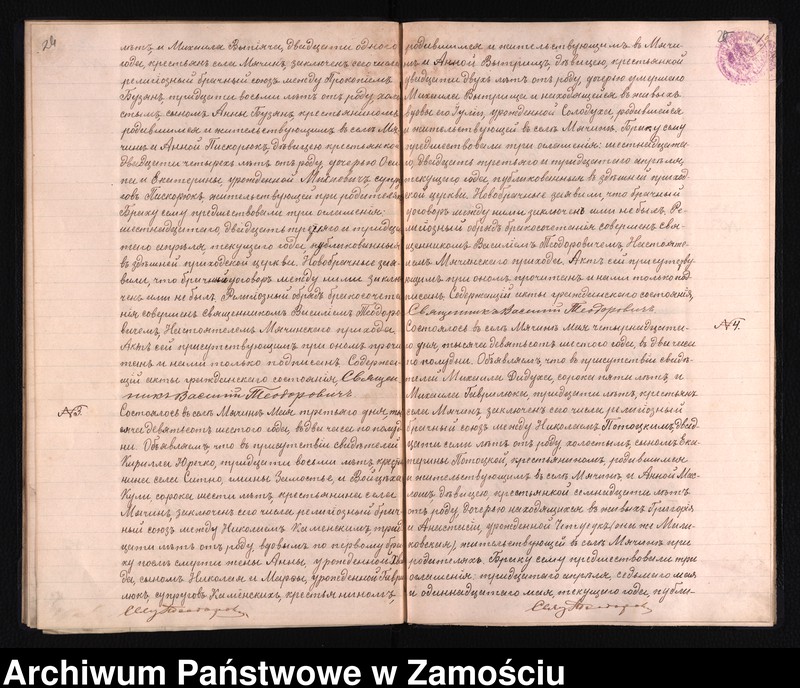 24
лѣтъ, и Михаила Выпіяча, двадцати одного
года, крестьянъ села Мячинъ, заключенъ сего числа
религіозный брачный союзъ между Прокопіемъ
Бузанъ, тридцати восьми лѣтъ отъ роду, холо-
стымъ, сыномъ Анны Бузанъ, крестьяниномъ,
родившимся и жительствующимъ въ селѣ Мя-
чинъ и Анной Пискорюкъ, дѣвицею, крестьянкою
двадцати четырехъ лѣтъ отъ роду, дочерью Оси-
па и Екатерины, урожденной супру-
говъ Пискорюкъ, жительствующей при родителяхъ.
Браку сему предшествовали три оглашенія:
шестнадцатаго, двадцать третяго и тридца-
таго апрѣля, текущаго года, публикованныя
въ здѣшней приходской церкви. Новобрачные зая-
вили, что брачный договоръ между ими заклю-
ченъ или не былъ. Религіозный обрядъ бракосочета-
нія совершенъ священникомъ Василіемъ Теодоро-
вичемъ, Настоятелемъ Мячинскаго прихода.
Актъ сей присутствующимъ при ономъ прочи-
танъ и нами только подписанъ. Содержа-
щій акты гражданскаго состоянія, Священ-
никъ Василій Теодоровичъ
№3.
Состоялось въ селѣ Мячинъ Мая третьяго дня, ты-
сяча девятсотъ шестого года, въ два часа по полуд-
ни. Объявляемъ, что въ присутствіи свидѣтелей
Кирилла Юрчко, тридцати восьми лѣтъ, крестья-
нина села Ситно, гмины Замостье, и Войцѣха
Кули, сорока шести лѣтъ, крестьянина села
Мячинъ, заключенъ сего числа религіозный брач-
ный союзъ между Николаемъ Каменскимъ, трид-
цати лѣтъ отъ роду, вдовымъ по первому бра-
ку послѣ смерти жены Анны, урожденной
сыномъ Николая и Марѳы, урожденной Гаври-
люкъ, супруговъ Каменскихъ, крестьяниномъ,
родившимся и жительствующимъ въ Мячи-
нѣ и Анной Вытрищъ, дѣвицею, крестьянкой
двадцати двухъ лѣтъ отъ роду, дочерью умершаго
Михаила Вытрища и находящейся въ живыхъ
вдовы его Юліи, урожденной Солодуха, родившейся
и жительствующей въ селѣ Мячинъ. Браку сему
предшествовали три оглашенія: шестнадцата-
го, двадцать третьяго и тридцатаго апрѣля,
текущаго года, публикованныя въ здѣшней приход-
ской церкви. Новобрачные заявили, что брачный
договоръ между ними заключенъ или не былъ. Ре-
лигіозный обрядъ бракосочетанія совершенъ свя-
щенникомъ Василіемъ Теодоровичемъ Настояте-
лемъ Мячинскаго прихода. Актъ сей присутству-
ющимъ при ономъ прочитанъ и нами только под-
писанъ. Содержащій акты гражданскаго состоянія,
Священникъ Василій Теодоровичъ
№4.
Состоялось въ селѣ Мячинъ Мая четырнадцата-
го дня, тысяча девятьсотъ шестого года, въ два часа
по полудни. Объявляемъ, что въ присутствіи свидѣ-
телей Михаила Дидуха, сорока пяти лѣтъ, и
Михаила Гаврилюка, тридцати лѣтъ, крестьянъ
села Мячинъ, заключенъ сего числа религіозный
брачный союзъ между Николаемъ Потоцкимъ, двад-
цати семи лѣтъ отъ роду, холостымъ, сыномъ Ека-
терины Потоцкой, крестьяниномъ, родившимся
и жительствующимъ въ селѣ Мячинъ, и Анной
дѣвицею, крестьянкой семнадцати лѣтъ
отъ роду, дочерью находящихся въ живыхъ Григорія
и Анастасіи, урожденной
жительствующей въ селѣ Мячинъ при
родителяхъ. Браку сему предшествовали три
оглашенія: тридцатаго апрѣля, седьмого мая
и одиннадцатаго мая, текущаго года, публи-
Archiwum Państwowe w Zamościu